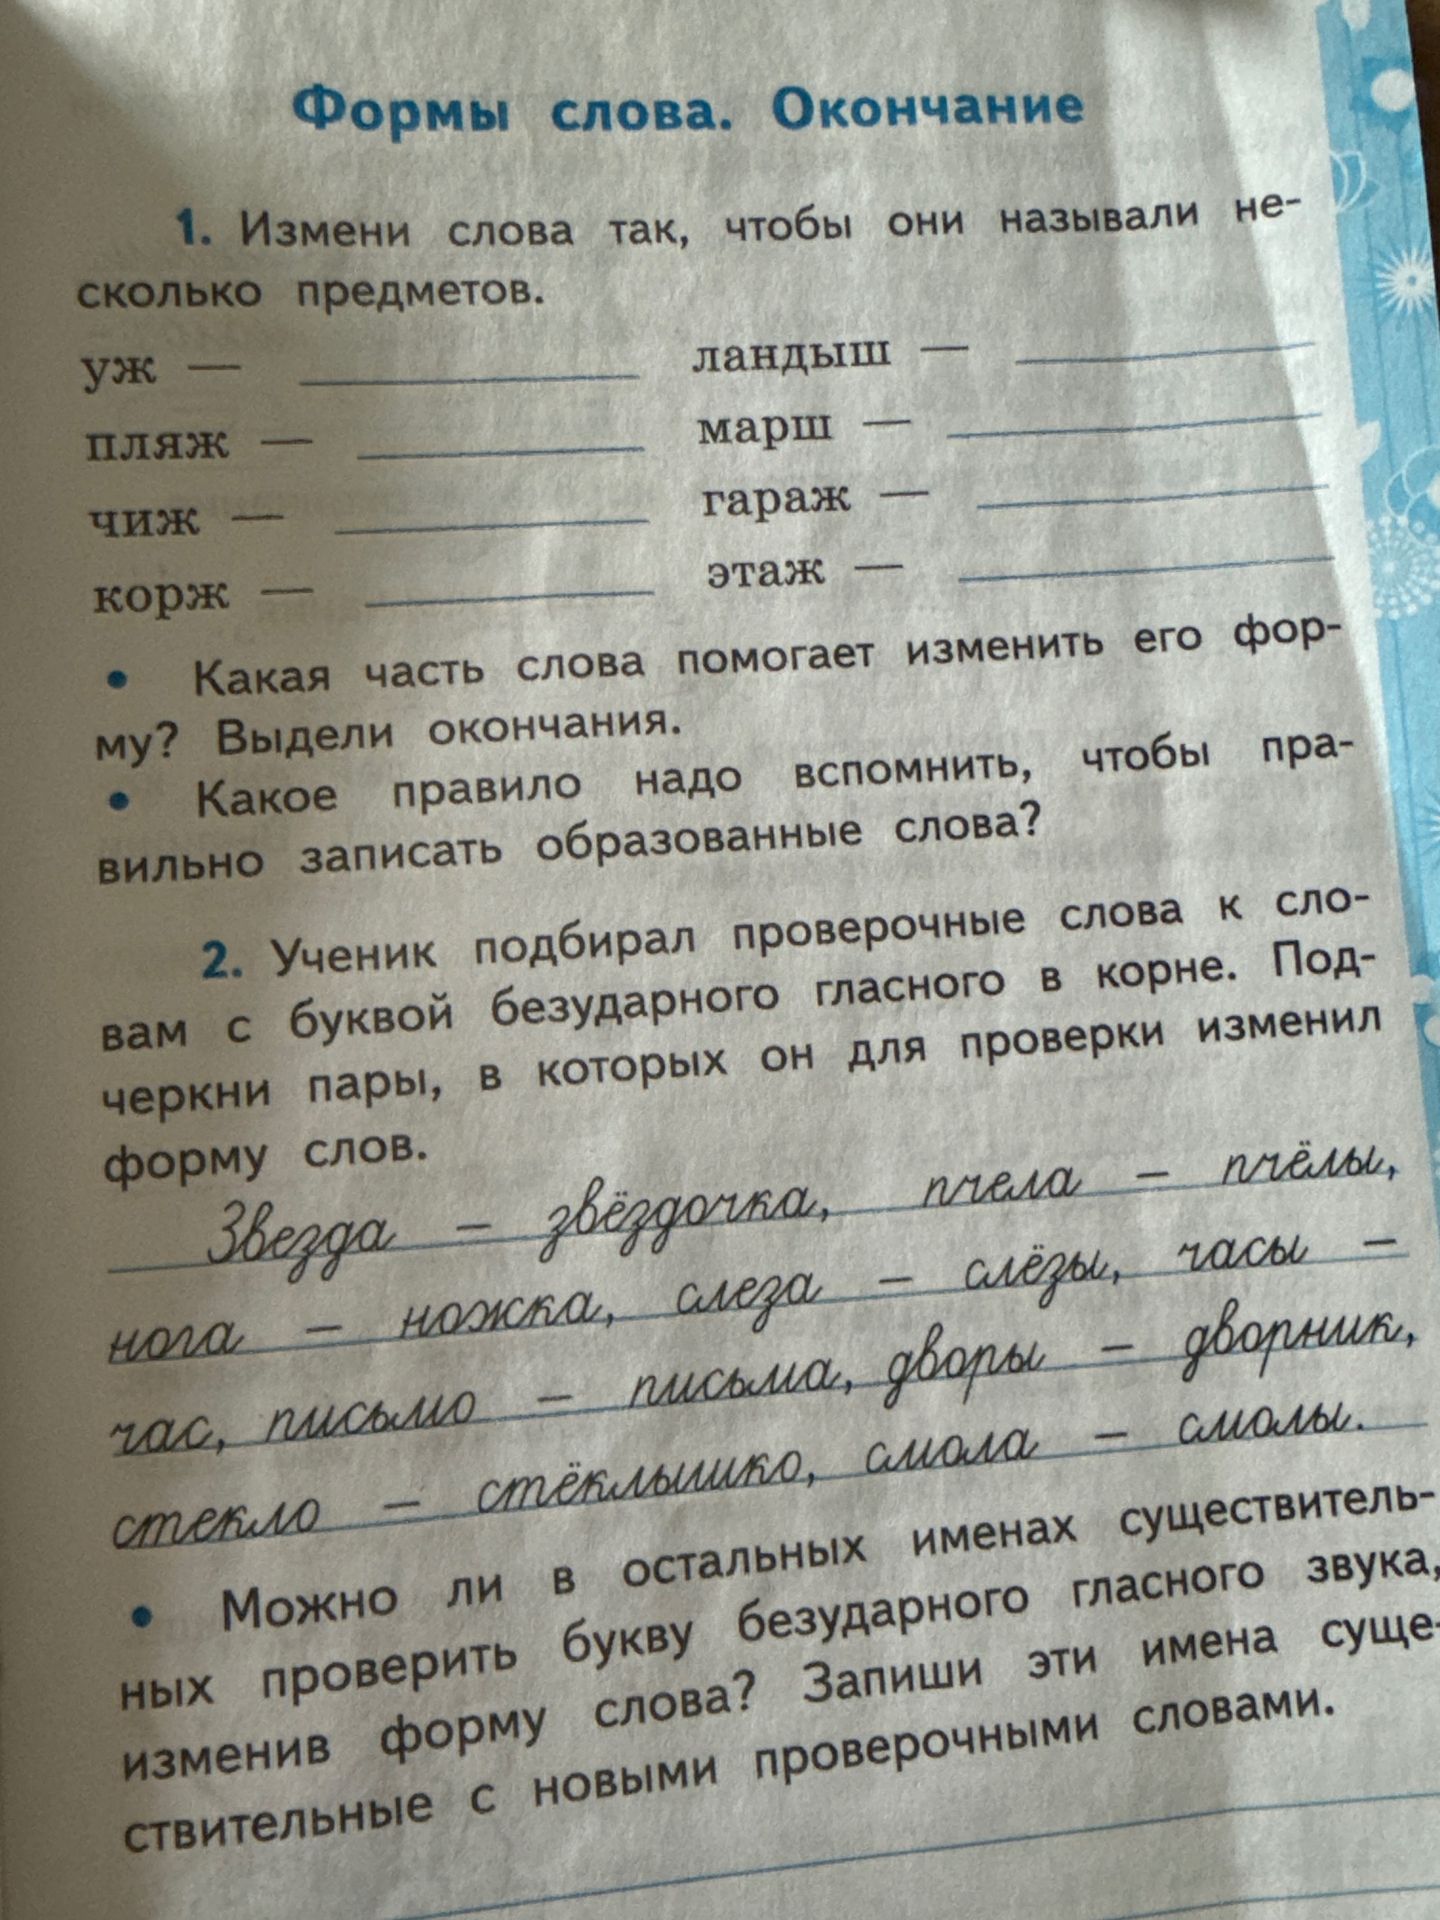 Формы слова. Окончание
1. Измени слова так, чтобы они называли не-
сколько предметов.
уж — ландыш —
пляж — марш —
чиж — гараж —
корж — этаж —
• Какая часть слова помогает изменить его фор-
му? Выдели окончания.
• Какое правило надо вспомнить, чтобы пра-
вильно записать образованные слова?
2. Ученик подбирал проверочные слова к сло-
вам с буквой безударного гласного в корне. Под-
черкни пары, в которых он для проверки изменил
форму слов.
Звезда – звёздочка, пчела – пчёлы,
нога – ножка, слеза – слёзы, часы –
час, письмо – письма, дворы – дворник,
стекло – стёклышко, смола – смолы.
• Можно ли в остальных именах существитель-
ных проверить букву безударного гласного звука,
изменив форму слова? Запиши эти имена суще-
ствительные с новыми проверочными словами.